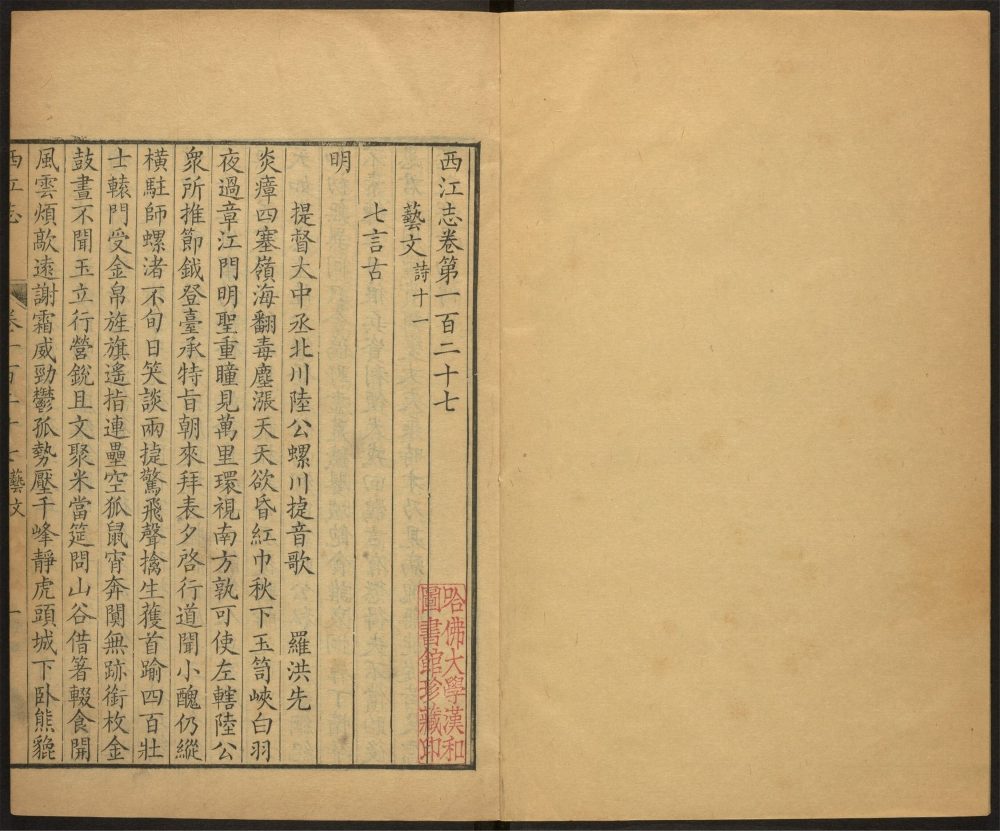 西江志卷第一百二十七
藝文詩十一
七言古
明
提督大中丞北川陸公螺川捷音歌 羅洪先
炎瘴四塞嶺海翻毒塵漲天天欲昏紅巾秋下玉笥峽白羽
夜過章江門明聖重瞳見萬里環視南方孰可使左轄陸公
衆所推節鉞登臺承特旨朝來拜表夕啓行道聞小醜仍縱
橫駐師螺渚不旬日笑談兩捷驚飛聲擒生獲首踰四百壯
士轅門受金帛旌旗遙指連壘空狐鼠宵奔闃無跡銜枚金
鼓晝不聞玉立行營銳且文聚米當筵問山谷借箸輟食開
風雲煩歊遠謝霜威勁鬱孤勢壓千峰靜虎頭城下卧熊貔
西江志 卷一百二十七藝文 一
哈佛大學漢和
圖書館珍藏印